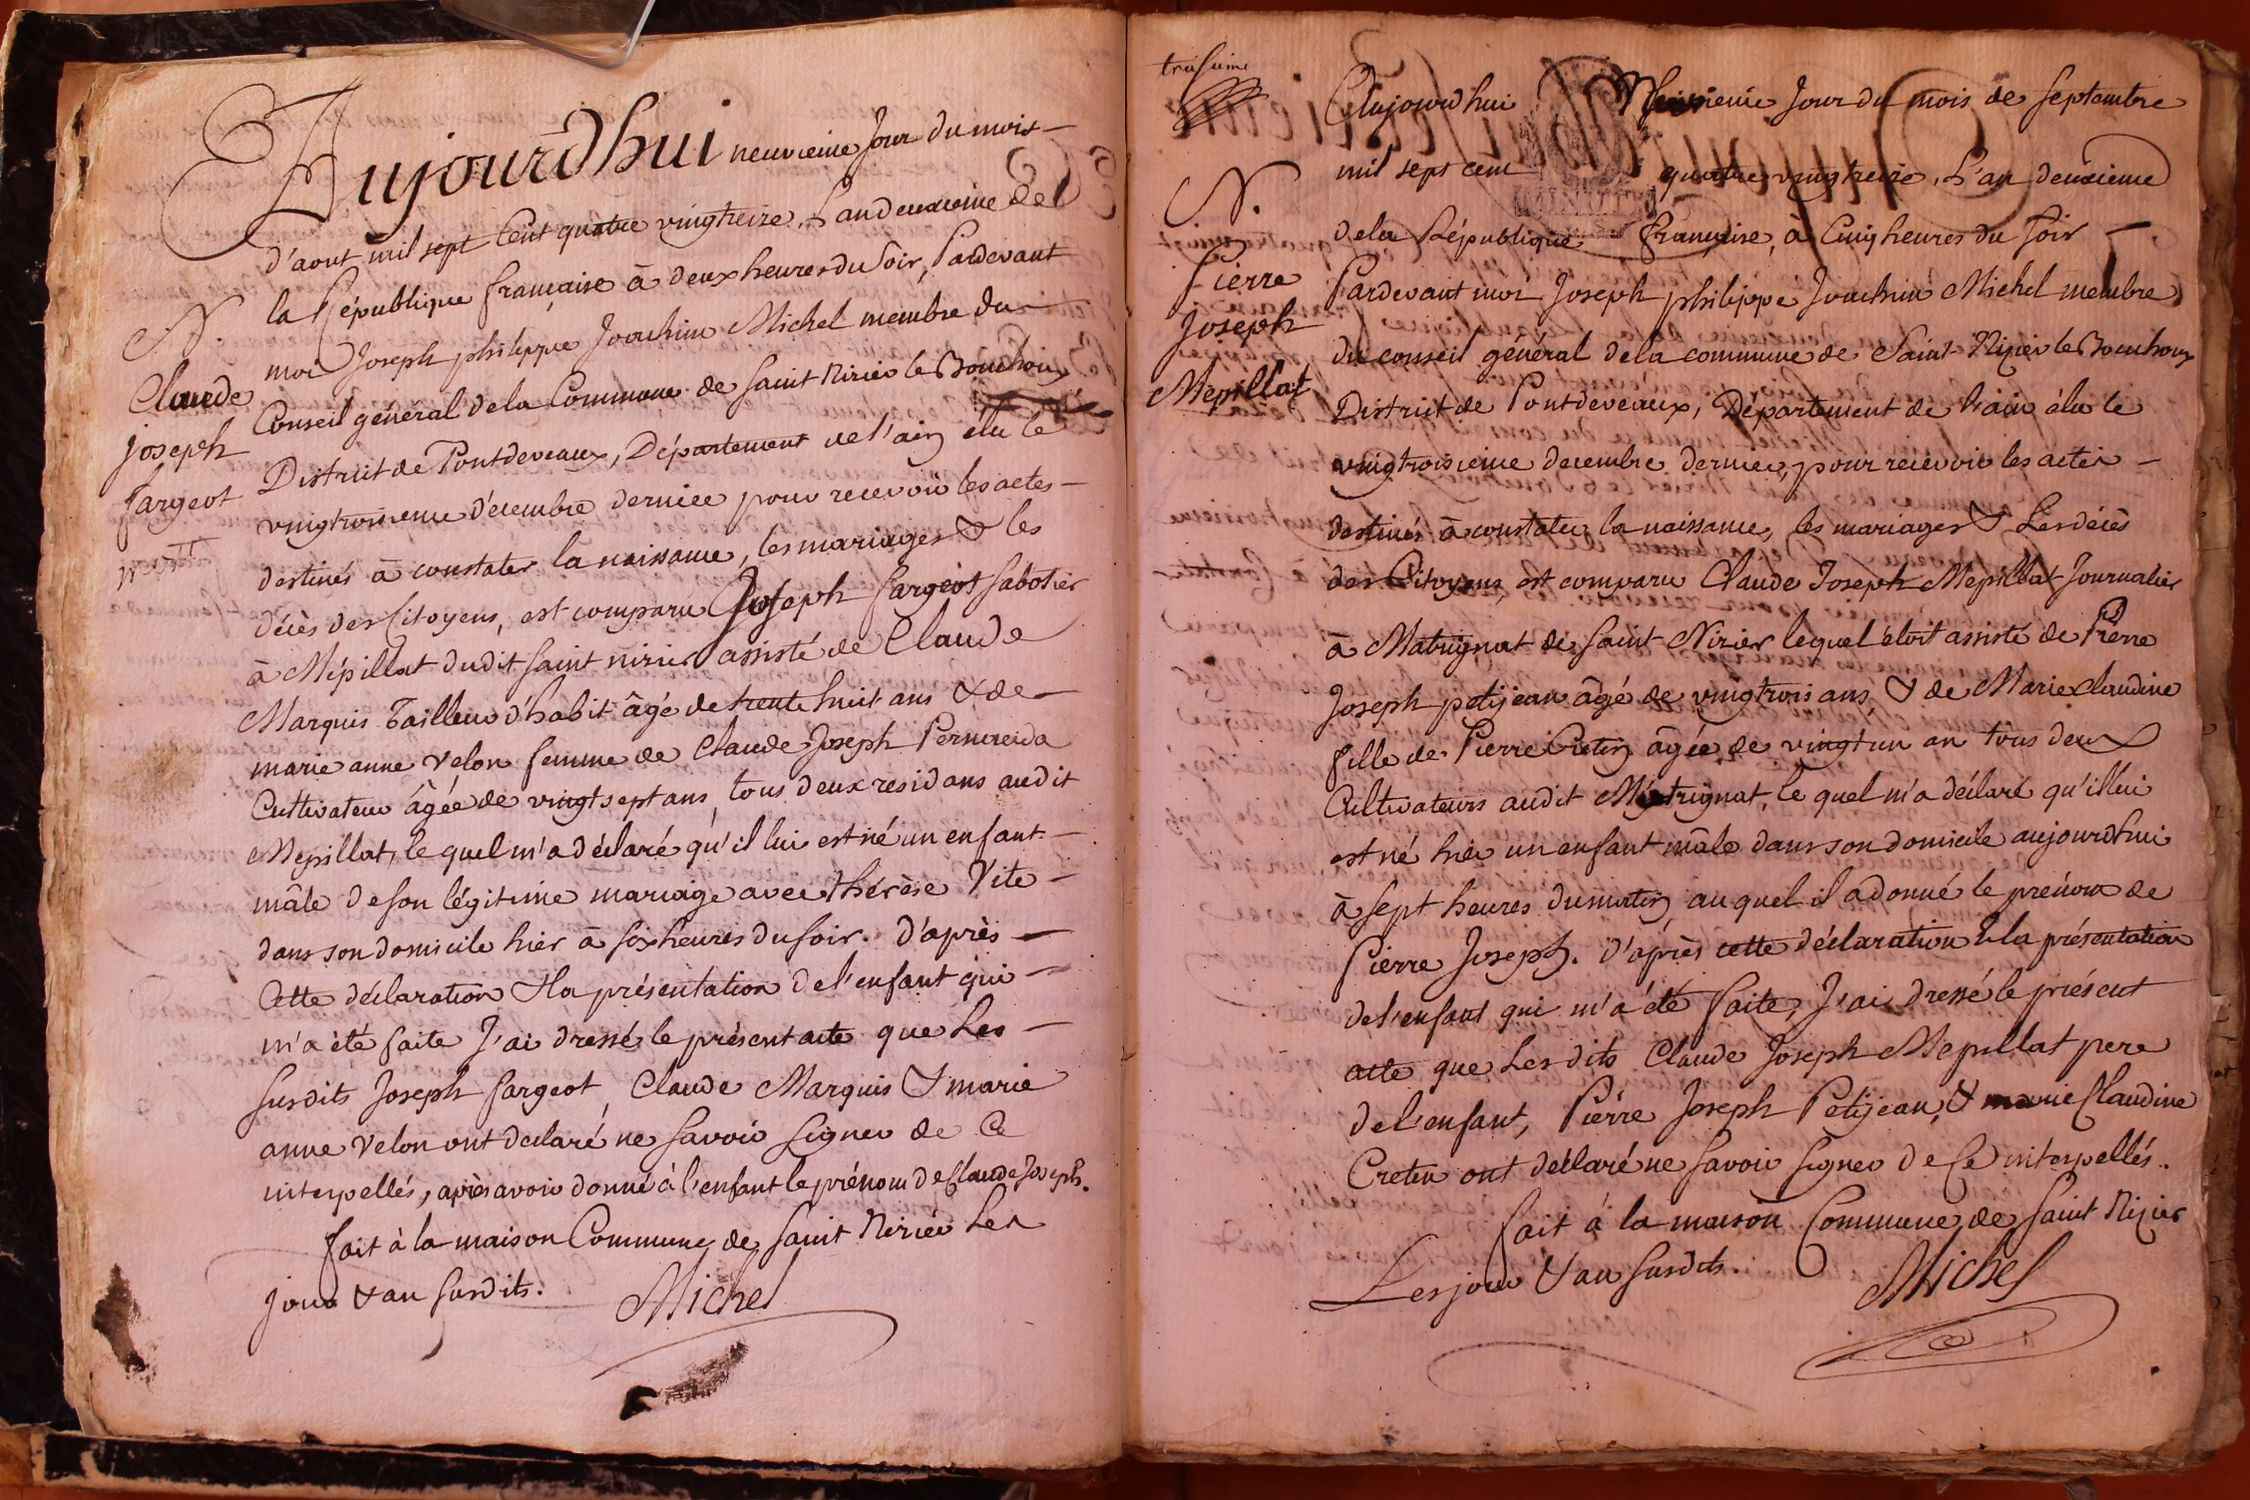 Aujourd'hui neuvieme Jour du mois
d'aout mil sept Cent quatre vingtreize, L'an deuxieme de
la République française à deux heures du soir, Pardevant
moi Joseph philippe Joachim Michel membre du
Conseil général de la Commune de saint Nizier le Bouchoux
District de Pontdeveaux, Département de l'ain élu le
vingtroisieme décembre dernier pour recevoir les actes
destinés à constater la naissance, les mariages & les
décès des Citoyens, est comparu Joseph fargeot Sabotier
à Mépillat dudit saint nizier assisté de Claude
Marquis Tailleur d'habit âgé de trente huit ans & de
marie anne Velon femme de Claude Joseph
Cultivateur âgée de vingt sept ans, tous deux residans audit
Mepillat, le quel m'a déclaré qu'il lui est né un enfant
mâle de son légitime mariage avec thérèse Vite
dans son domicile hier à six heures du soir. d'après
Cette déclaration & la présentation de l'enfant qui
m'a été faite J'ai dressé le présent acte que Les
susdits Joseph fargeot, Claude Marquis & marie
anne Velon ont declaré ne savoir signer de Ce
interpellés, après avoir donné à l'enfant le prénom de Claude Joseph.
fait à la maison Commune de saint Nizier Les
jour & an susdits.
Michel
N.
Claude
joseph
fargeot
N.
Pierre
Joseph
Mepillat
Aujourdhui Jour du mois de septembre
mil sept cent quatre vingtreize, L'an deuxieme
de la République française, à Cinq heures du soir
Pardevant moi Joseph philippe Joachim Michel membre
du conseil général de la commune de Saint Nizier le Bouchoux
District de Pontdeveaux, Département de l'ain élu le
vingtroisieme decembre dernier, pour recevoir les actes
destinés à constater la naissance, les mariages & Les décès
des Citoyens, est comparu Claude Joseph Mepillat Journalier
à Matrignat de saint Nizier lequel étoit assisté de Piérre
Joseph petijean âgé de vingtrois ans, & de Marie claudine
fille de Pierre Cretin âgée de vingt un an tous deux
Cultivateurs audit Matrignat, le quel m'a déclaré qu'il lui
est né hier un enfant mâle dans son domicile aujourdhui
à sept heures du matin, au quel il a donné le prénom de
Pierre Joseph. d'après cette déclaration & la présentation
de l'enfant qui m'a été faite, J'ai dressé le présent
acte que Lesdits Claude Joseph Mepillat pere
de l'enfant, Piérre Joseph Petijean, & marie Claudine
Cretin ont déclaré ne savoir signer de Ce interpellés.
fait à la maison Commune de saint Nizier
Les jour & an susdits.
Michel